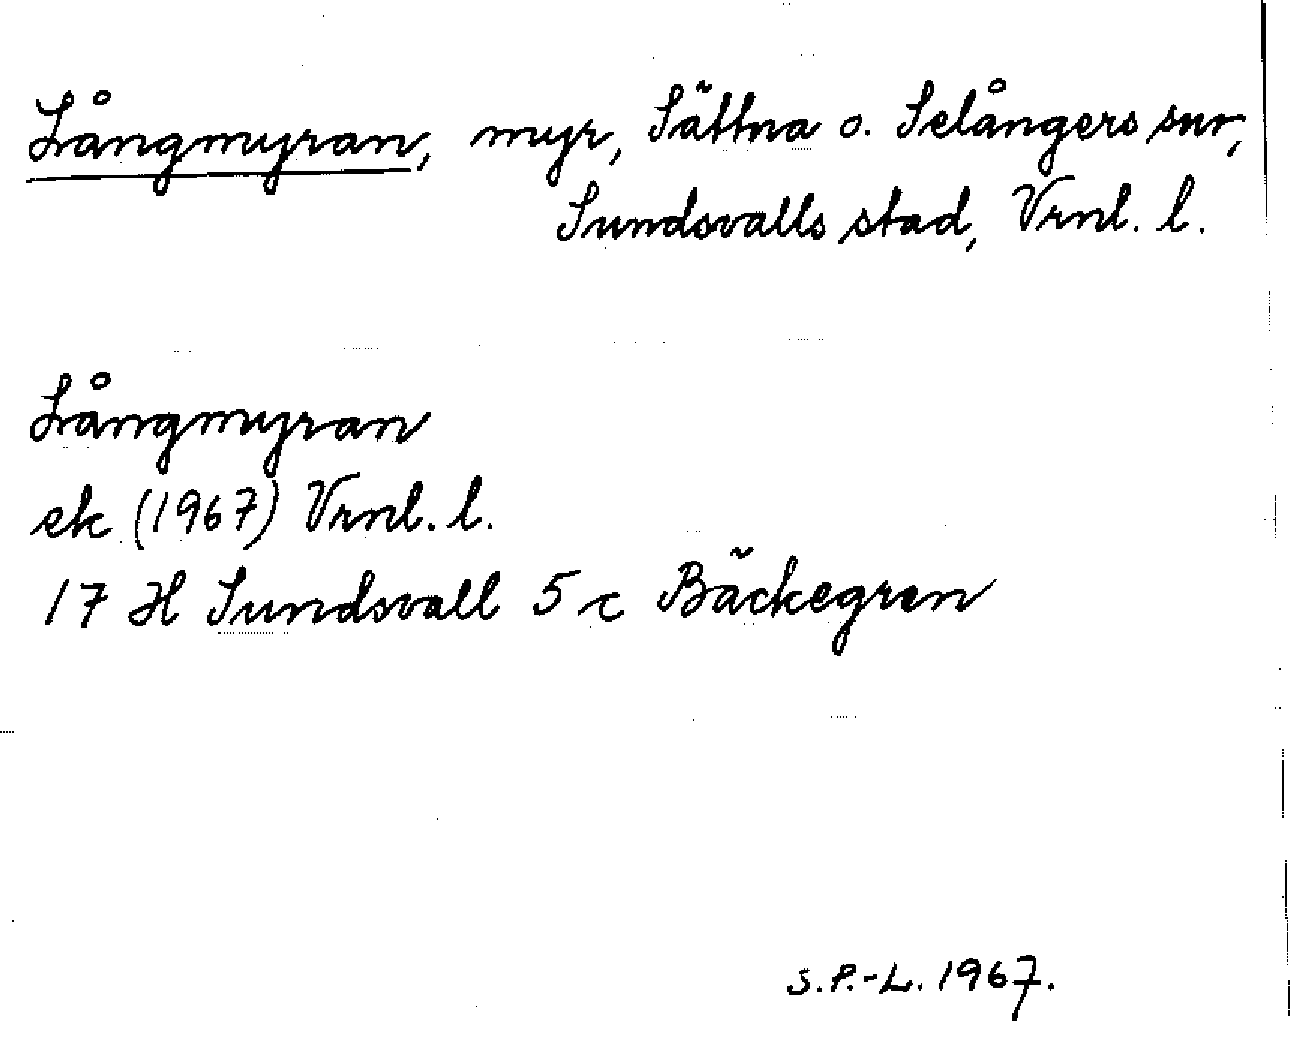 Långmyran, myr, Sättna o. Selångers snr,
Sundsvalls stad, Vrnl. l.
Långmyran
ek (1967) Vrnl. l.
17 H Sundsvall 5 c Bäckegren
S.P.-L. 1967.